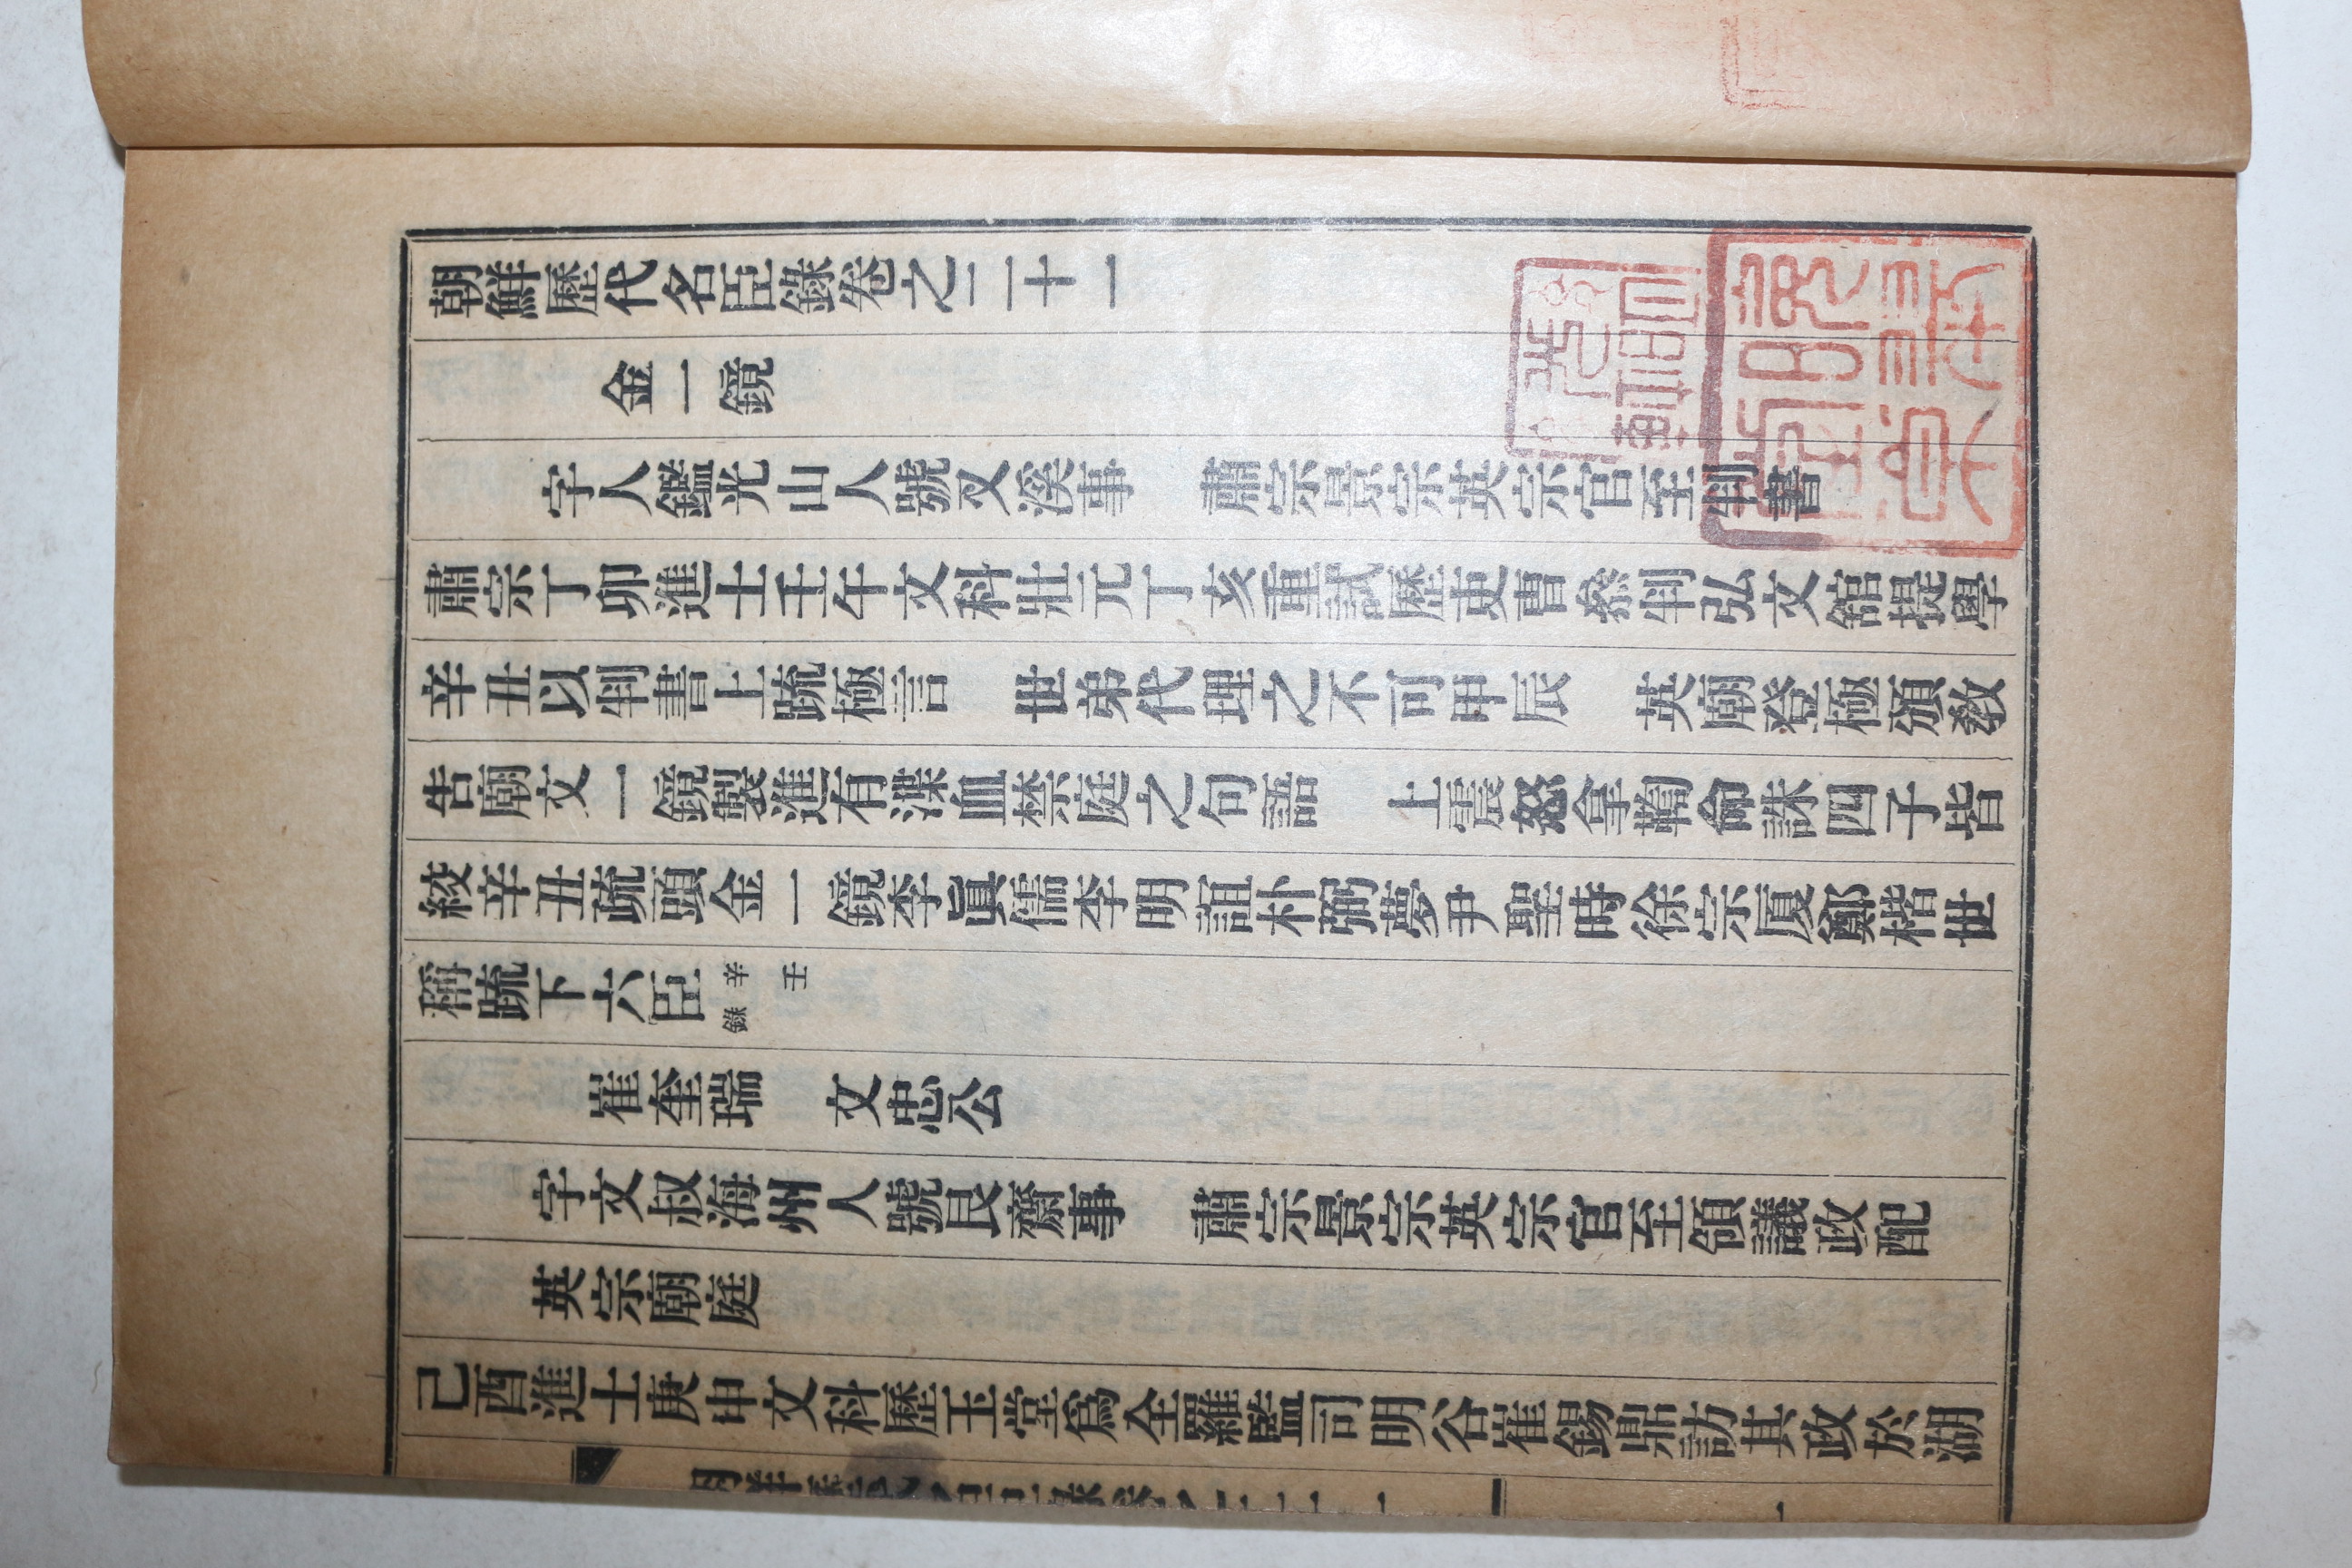 朝鮮歷代名臣錄卷之二十一
金一鏡
字人鑑光山人號又溪事　肅宗景宗英宗官至判書
肅宗丁卯進士壬午文科壯元丁亥重試歷吏曹叅判弘文舘提學
辛丑以判書上䟽極言　世弟代理之不可甲辰　英廟登極頒敎
告廟文一鏡製進有渫血禁庭之句語　上震怒拿鞫命誅四子皆
絞辛丑疏頭金一鏡李眞儒李明誼朴弼夢尹聖時徐宗厦鄭楷世
稱䟽下六臣辛壬錄
崔奎瑞　文忠公
字文叔海州人號艮齋事　肅宗景宗英宗官至領議政配
英宗廟庭
己酉進士庚申文科歷玉堂爲全羅監司明谷崔錫鼎訪其政於湖